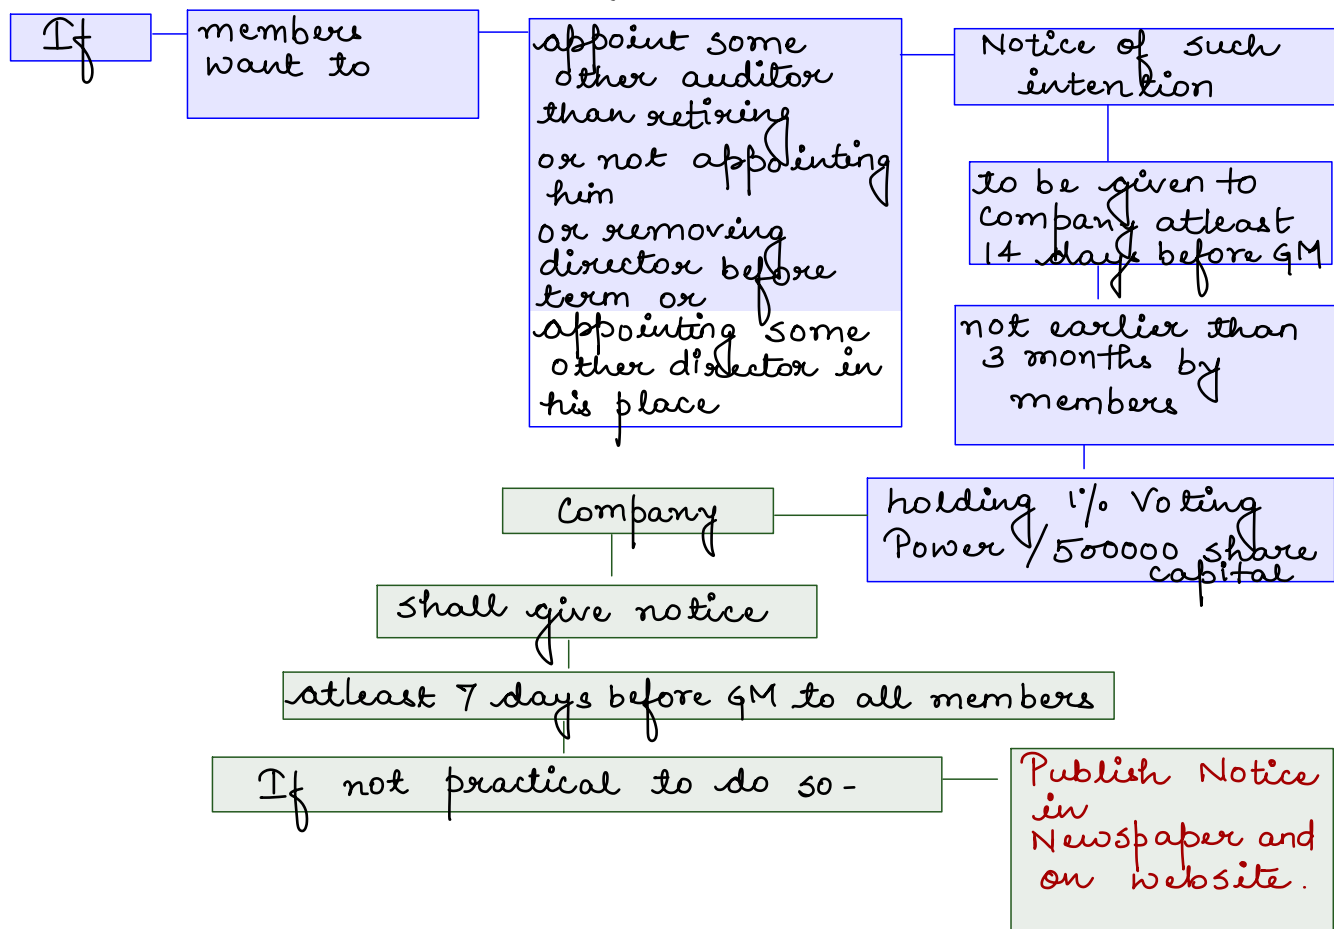 If
members
want to
appoint some
other auditor
than retiring
or not appointing
him
or removing
director before
term or
appointing some
other director in
his place
Notice of such
intention
to be given to
Company atleast
14 days before GM
not earlier than
3 months by
members
holding 1% Voting
Power /500000 share
capital
Company
shall give notice
atleast 7 days before GM to all members
If not practical to do so-
Publish Notice
in
Newspaper and
on website.